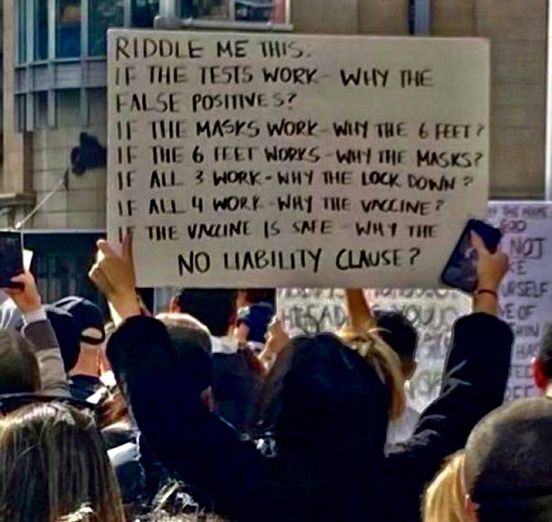 RIDDLE ME THIS:
IF THE TESTS WORK - WHY THE
FALSE POSITIVES?
IF THE MASKS WORK - WHY THE 6 FEET?
IF THE 6 FEET WORKS - WHY THE MASKS?
IF ALL 3 WORK - WHY THE LOCK DOWN?
IF ALL 4 WORK - WHY THE VACCINE?
IF THE VACCINE IS SAFE - WHY THE
NO LIABILITY CLAUSE?
NOT